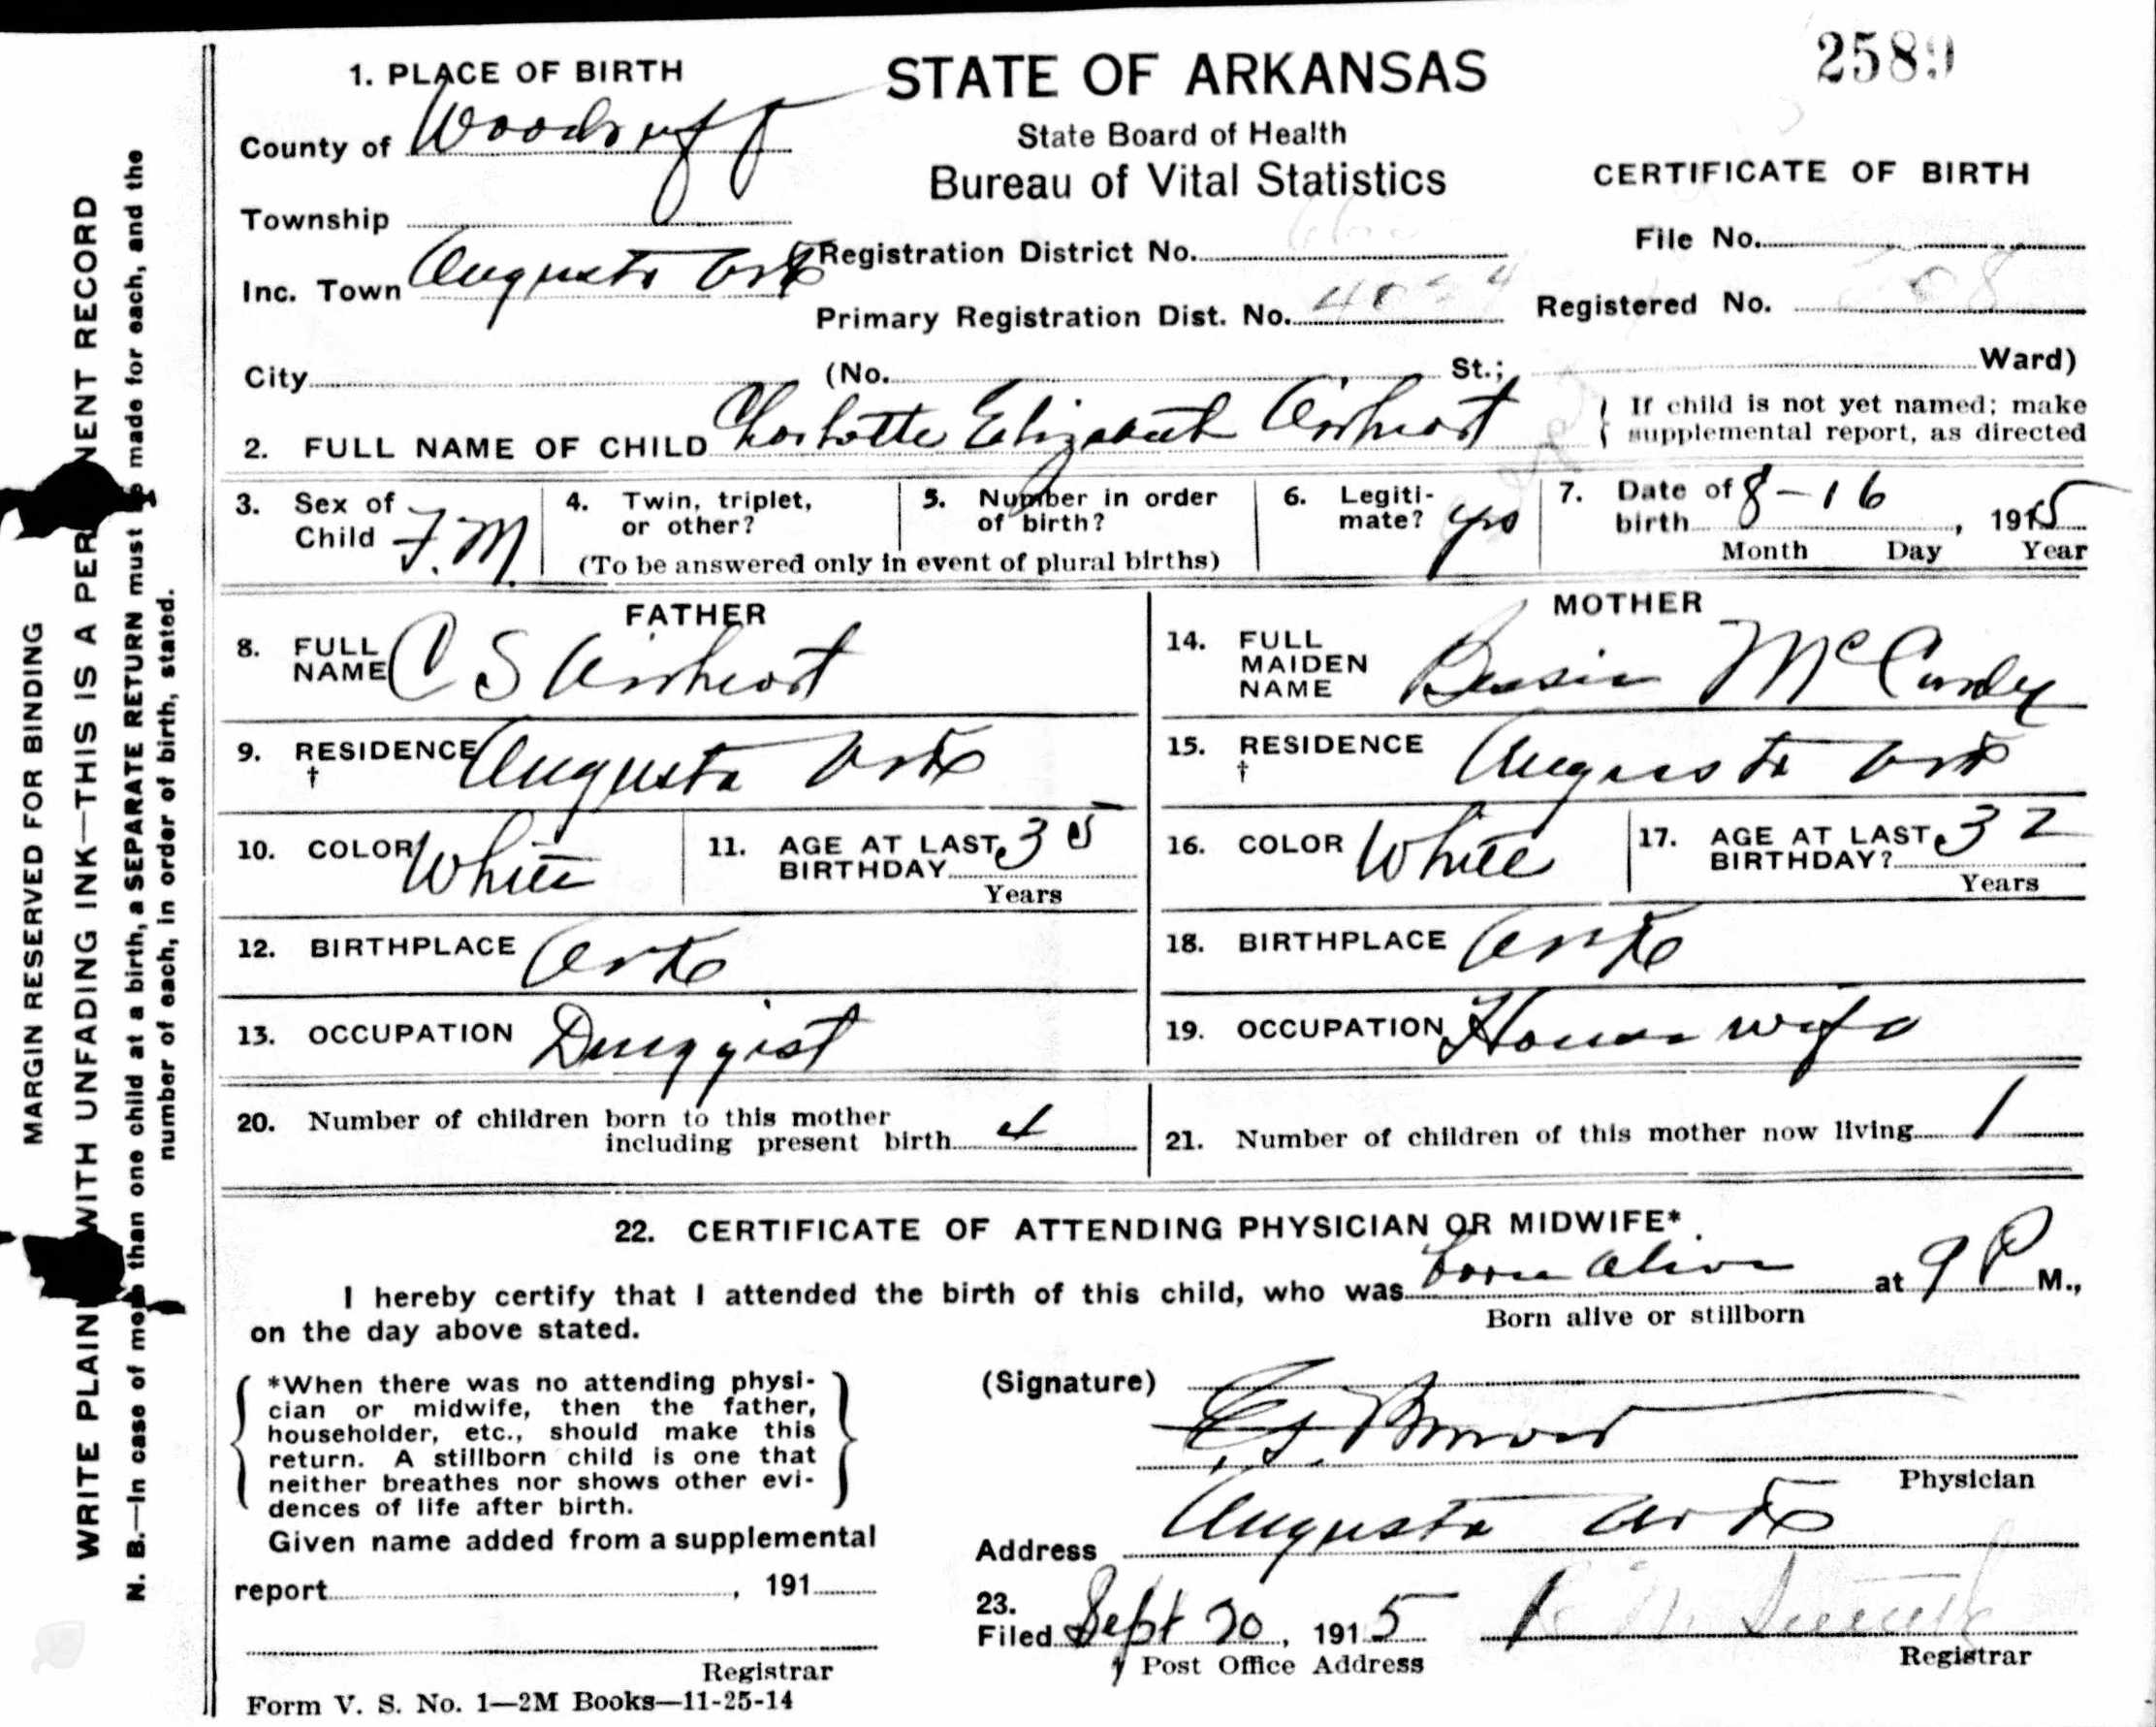 MARGIN RESERVED FOR BINDING
WRITE PLAIN WITH UNFADING INK—THIS IS A PER NENT RECORD
N. B.—In case of more than one child at a birth, a SEPARATE RETURN must be made for each, and the
number of each, in order of birth, stated.
2589
1. PLACE OF BIRTH
STATE OF ARKANSAS
State Board of Health
Bureau of Vital Statistics
CERTIFICATE OF BIRTH
County of Woodruff
Township
Registration District No.
File No.
Inc. Town Augusta Ark
Primary Registration Dist. No.
Registered No.
City (No. St.; Ward)
2. FULL NAME OF CHILD Charlotte Elizabeth Airheart
If child is not yet named; make
supplemental report, as directed
3. Sex of Child F.M.
4. Twin, triplet, or other?
5. Number in order of birth?
(To be answered only in event of plural births)
6. Legitimate? yes
7. Date of birth 8-16, 1915
Month Day Year
FATHER
8. FULL NAME C S Airheart
9. RESIDENCE † Augusta Ark
10. COLOR White
11. AGE AT LAST BIRTHDAY 35
Years
12. BIRTHPLACE Ark
13. OCCUPATION Druggist
MOTHER
14. FULL MAIDEN NAME Bessie McCurdy
15. RESIDENCE † Augusta Ark
16. COLOR White
17. AGE AT LAST BIRTHDAY? 32
Years
18. BIRTHPLACE Ark
19. OCCUPATION House wife
20. Number of children born to this mother
including present birth 4
21. Number of children of this mother now living 1
22. CERTIFICATE OF ATTENDING PHYSICIAN OR MIDWIFE*
I hereby certify that I attended the birth of this child, who was born alive at 9 P M.,
Born alive or stillborn
on the day above stated.
*When there was no attending physi-
cian or midwife, then the father,
householder, etc., should make this
return. A stillborn child is one that
neither breathes nor shows other evi-
dences of life after birth.
Given name added from a supplemental
report , 191
Registrar
Form V. S. No. 1—2M Books—11-25-14
(Signature)
Physician
Address Augusta Ark
23.
Filed Sept 20, 1915
Post Office Address
Registrar